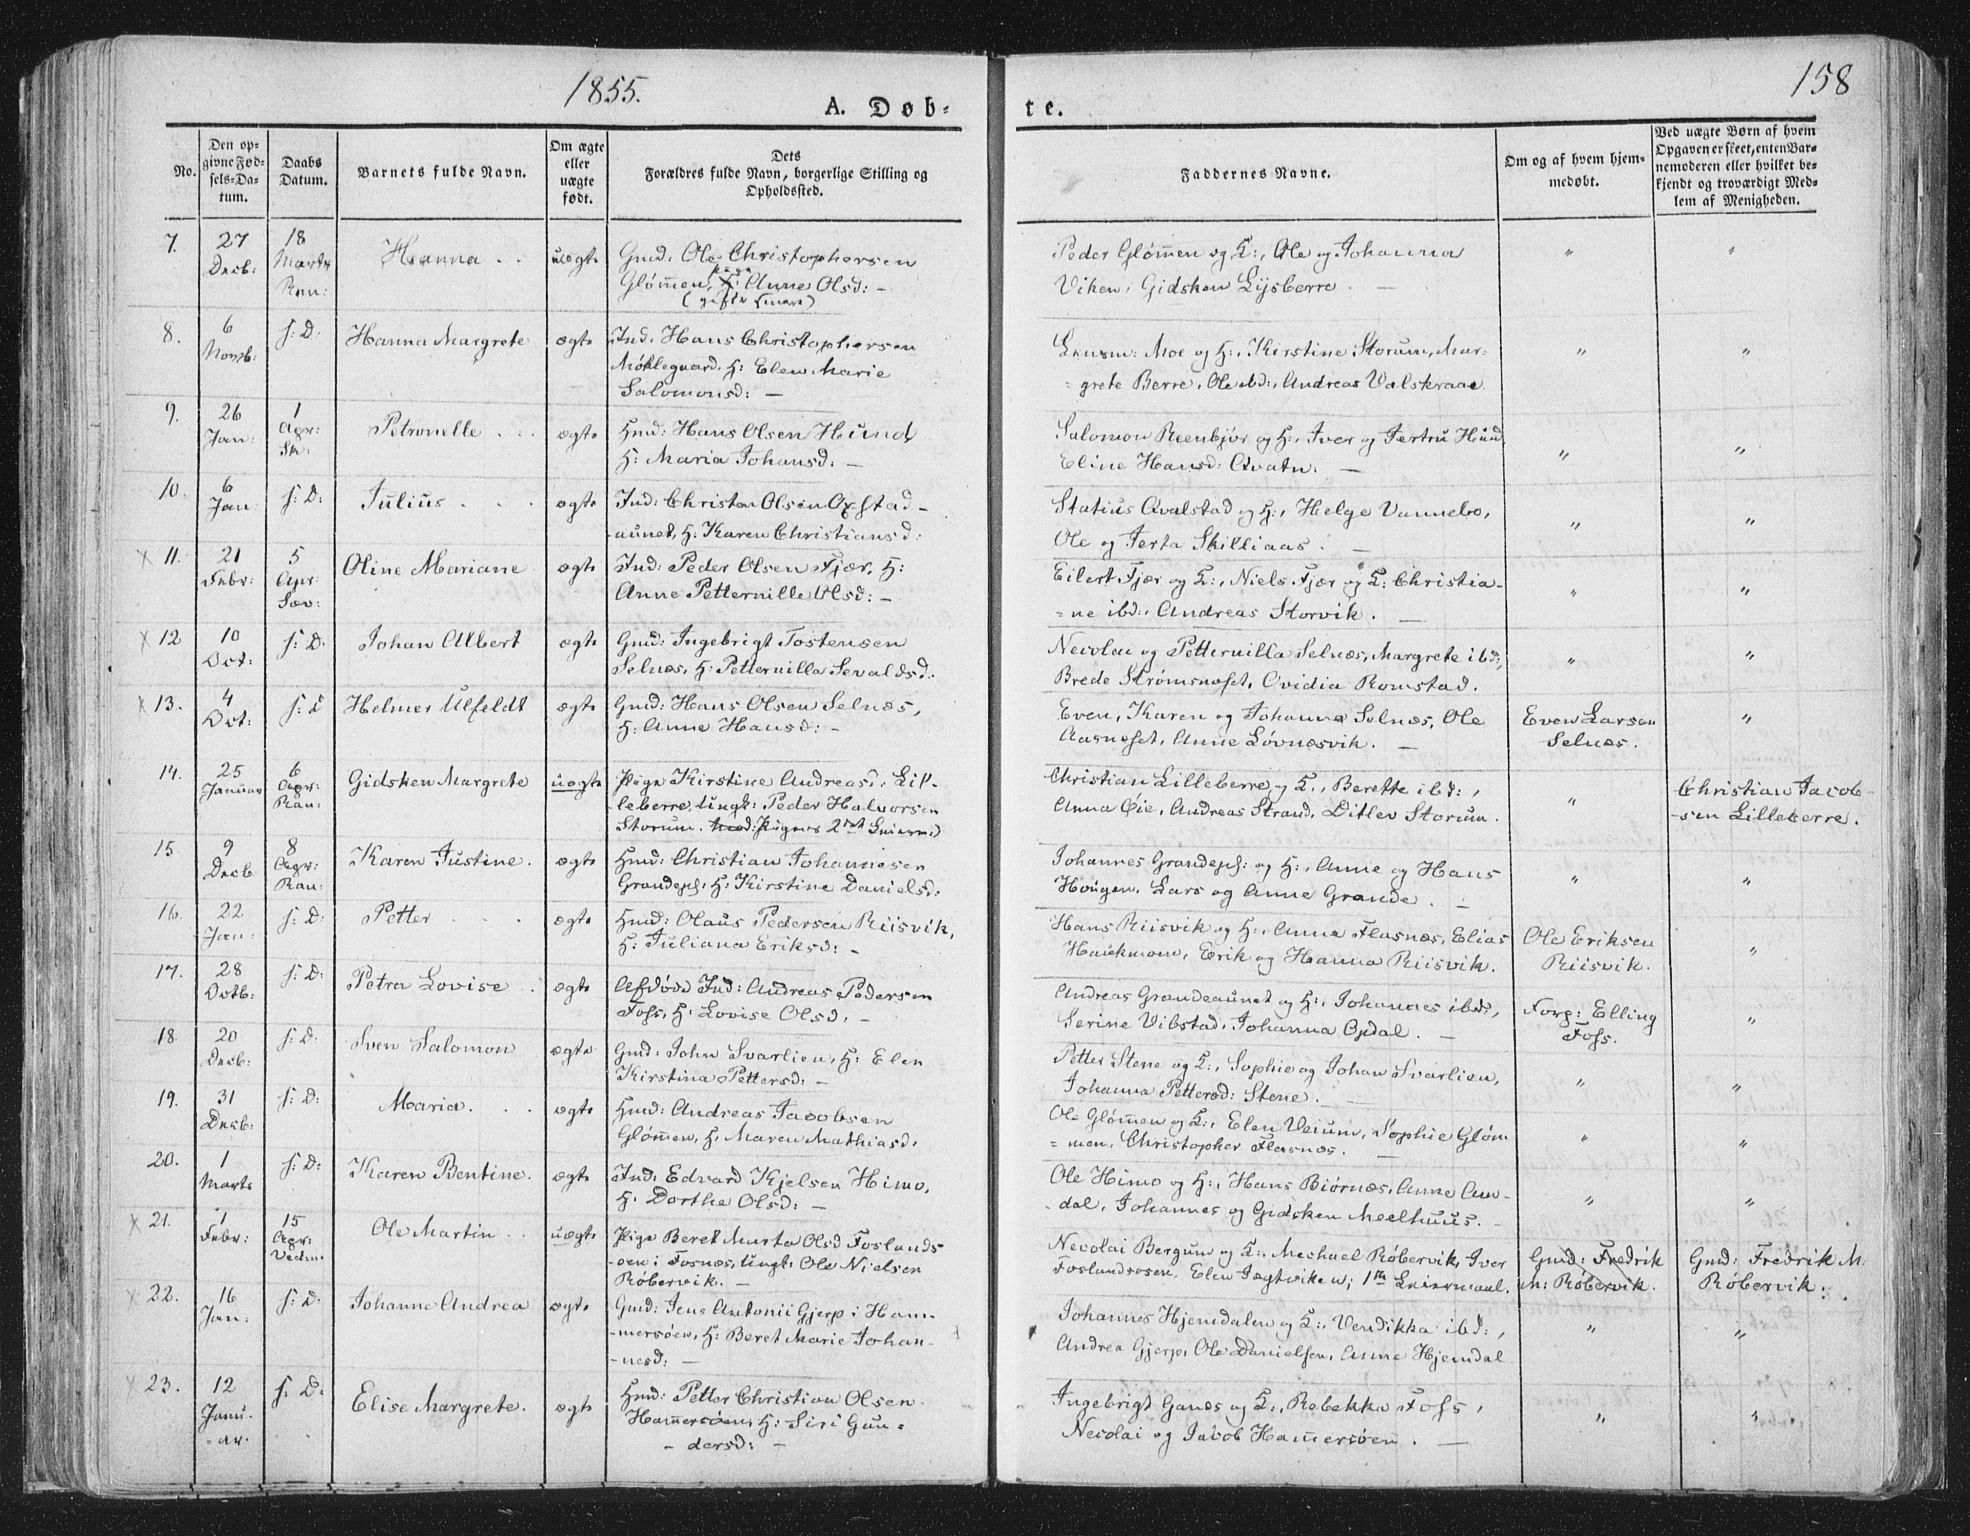 1855.
158
A. Døb-
te.
No.
Den op-
givne Fød-
sels-Da-
tum.
Daabs
Datum.
Barnets fulde Navn.
Om ægte
eller
uægte
født.
Dets
Forældres fulde Navn, borgerlige Stilling og
Opholdssted.
Faddernes Navne.
Om og af hvem hjem-
medøbt.
Ved uægte Børn af hvem
Opgaven er skeet, enten Bar-
nemoderen eller hvilket be-
kjendt og troværdigt Med-
lem af Menigheden.
7. 27 Decb: 18 Marts Ran: Hanna uægte
Gmd: Ole Christophersen
Glømmen, Anne Olsd: -
Peder Glømmen og H:, Ole og Johanna
Viken, Gidsken Lysberre. -
8. 6 Novb: s: D: Hanna Margrete ægte
Ind: Hans Christophersen
Møklegaard, H: Elen Marie
Salomonsd: -
Lensm: Moe og H:, Kirstine Storum, Mar-
grete Berre, Ole ibd:, Andreas Valskraae
9. 26 Jan: 1 Apr: Sk: Petronelle ægte
Hmd: Hans Olsen Hund
H: Maria Johansd: -
Salomon Reenbjør og H:, Iver og Jertru Hund
Eline Hansd: Qvatn: -
10. 6 Jan s: D: Julius ægte
Ind: Christen Olsen Oxstad-
aunet, H: Karen Christiansd:
Statius Qvalstad og H:, Helge Vannebo,
Ole og Jerta Skilliaas. -
x 11. 21 Febr: 5 Apr: Sæv: Oline Mariane ægte
Ind: Peder Olsen Fjær, H:
Anne Petternille Olsd: -
Eilert Fjær og H:, Niels Fjær og H: Christia-
ne ibd:, Andreas Storvik. -
x 12 10 Oct: s: D: Johan Albert ægte
Gmd: Ingebrigt Tostensen
Selnæs, H: Petternilla Sevaldsd:
Nicolai og Petternilla Selnæs, Margrete ibd:,
Brede Strømsnæset, Ovidia Romstad.
x 13. 4 Oct: s: D Helmer Ulfeldt ægte
Gmd: Hans Olsen Selnæs,
H: Anne Hansd: -
Even, Karen og Johanna Selnæs, Ole
Aasnæset, Anne Løvnæsvik. -
Even Larsen
Selnæs.
14. 25 Januar 6 Apr: Ran: Gidsken Margrete uægte
Pige Kirstine Andreasd: Lil-
leberre, Ungk: Peder Halvorsen
Storum. Pigens 2det Leierm:
Christian Lilleberre og H:, Berette ibd:,
Anna Øie, Andreas Strand, Ditlev Storum.
Christian Jacob-
sen Lilleberre.
15. 9 Decb 8 Apr: Ran: Karen Justine. ægte
Hmd: Christian Johannesen
Grandepl: H: Kirstine Danielsd:
Johannes Grandepl: og H:, Anne og Hans
Hougen, Lars og Anne Grande. -
16. 22 Jan: s: D: Petter ægte
Hmd: Olaus Pedersen Riisvik,
H: Juliana Eriksd: -
Hans Riisvik og H:, Anna Flasnæs, Elias
Haukmoen, Erik og Hanna Riisvik.
Ole Eriksen
Riisvik.
17. 28 Octb: s: D: Petra Lovise ægte
Afdøde Ind: Andreas Pedersen
Foss, H: Lovise Olsd. -
Andreas Grandeaunet og H:, Johannes ibd:,
Serine Vibstad, Johanna Opdal. -
Forp: Elling
Foss.
18. 20 Decb: s: D: Sven Salomon ægte
Gmd: John Svarlien, H: Elen
Kirstina Pettersd: -
Petter Stene og H:, Sophie og Johan Svarlien,
Johanna Pettersd: Stene. -
19. 31 Decb: s: D: Maria. ægte
Hmd: Andreas Jacobsen
Glømmen, H: Maren Mathiasd.
Ole Glømmen og H:, Elen Veium, Sophie Gløm-
men, Christopher Flasnæs. -
20. 1 Marts s: D: Karen Bentine. ægte
Ind: Edvard Kjelsen Himo,
H: Dorthe Olsd: -
Ole Himo og H:, Hans Biørnæs, Anne Am-
dal, Johannes og Gidsken Meelhuus. -
x 21. 1 Febr: 15 Apr: Vedm: Ole Martin uægte
Pige Beret Marta Olsd Foslands
øen i Fosnæs, Ungk: Ole Nielsen
Røbervik. -
Nicolai Bergum og H:, Mechael Røbervik, Iver
Foslandsosen, Elen Jægtviken; 1ste Leiermaal.
Gmd: Fredrik
M: Røbervik.
Gmd: Fredrik M:
Røbervik.
x 22. 16 Jan: s: D: Johanne Andrea ægte
Gmd: Jens Antonii Gjerp i Ham-
mersøen, H: Beret Marie Johan-
nesd: -
Johannes Hjemdalen og H:, Vendikka ibd:,
Andrea Gjerp, Ole Danielsen, Anne Hjemdal
x 23. 12 Janu-ar. s: D: Elise Margrete. ægte
Hmd: Petter Christian Olsen
Hammersøen, H: Siri Gun-
dersd: -
Ingebrigt Ganæs og H:, Rebekka Foss,
Nicolai og Jacob Hammersøen. -